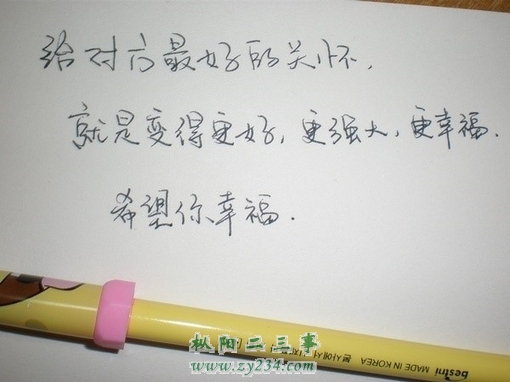 给对方最好的关怀，
就是变得更好，更强大，更幸福．
希望你幸福．
bestni MADE IN KOREA 본사에서
枞阳二三事
www.zy234.com